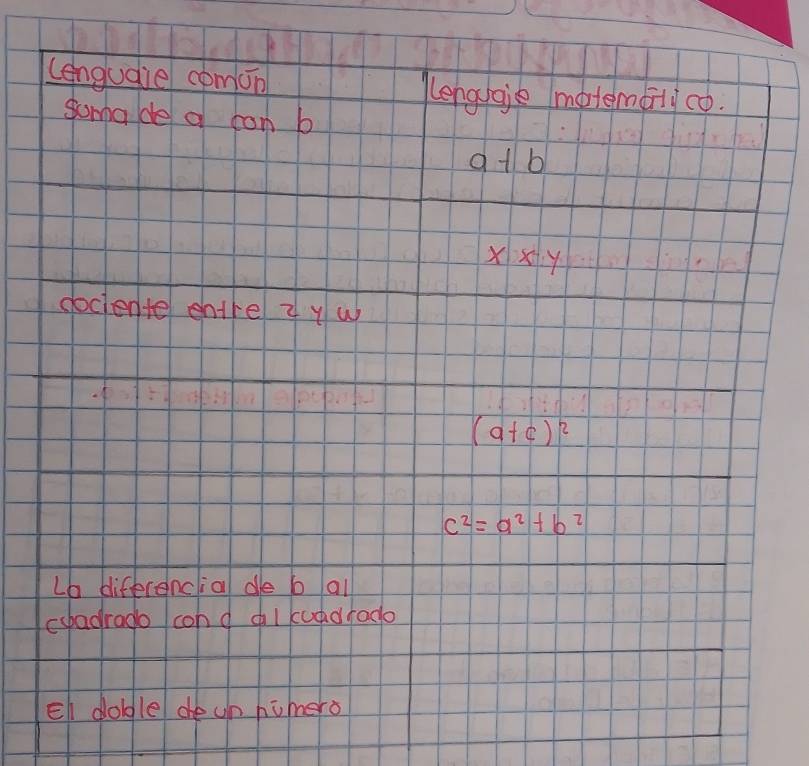 Lenguaje común
Lenguaje matemático.
Suma de a con b
a + b
x x y
cociente entre z y w
(a+c)²
c² = a² + b²
La diferencia de b al
cuadrado con c al cuadrado
El doble de un número